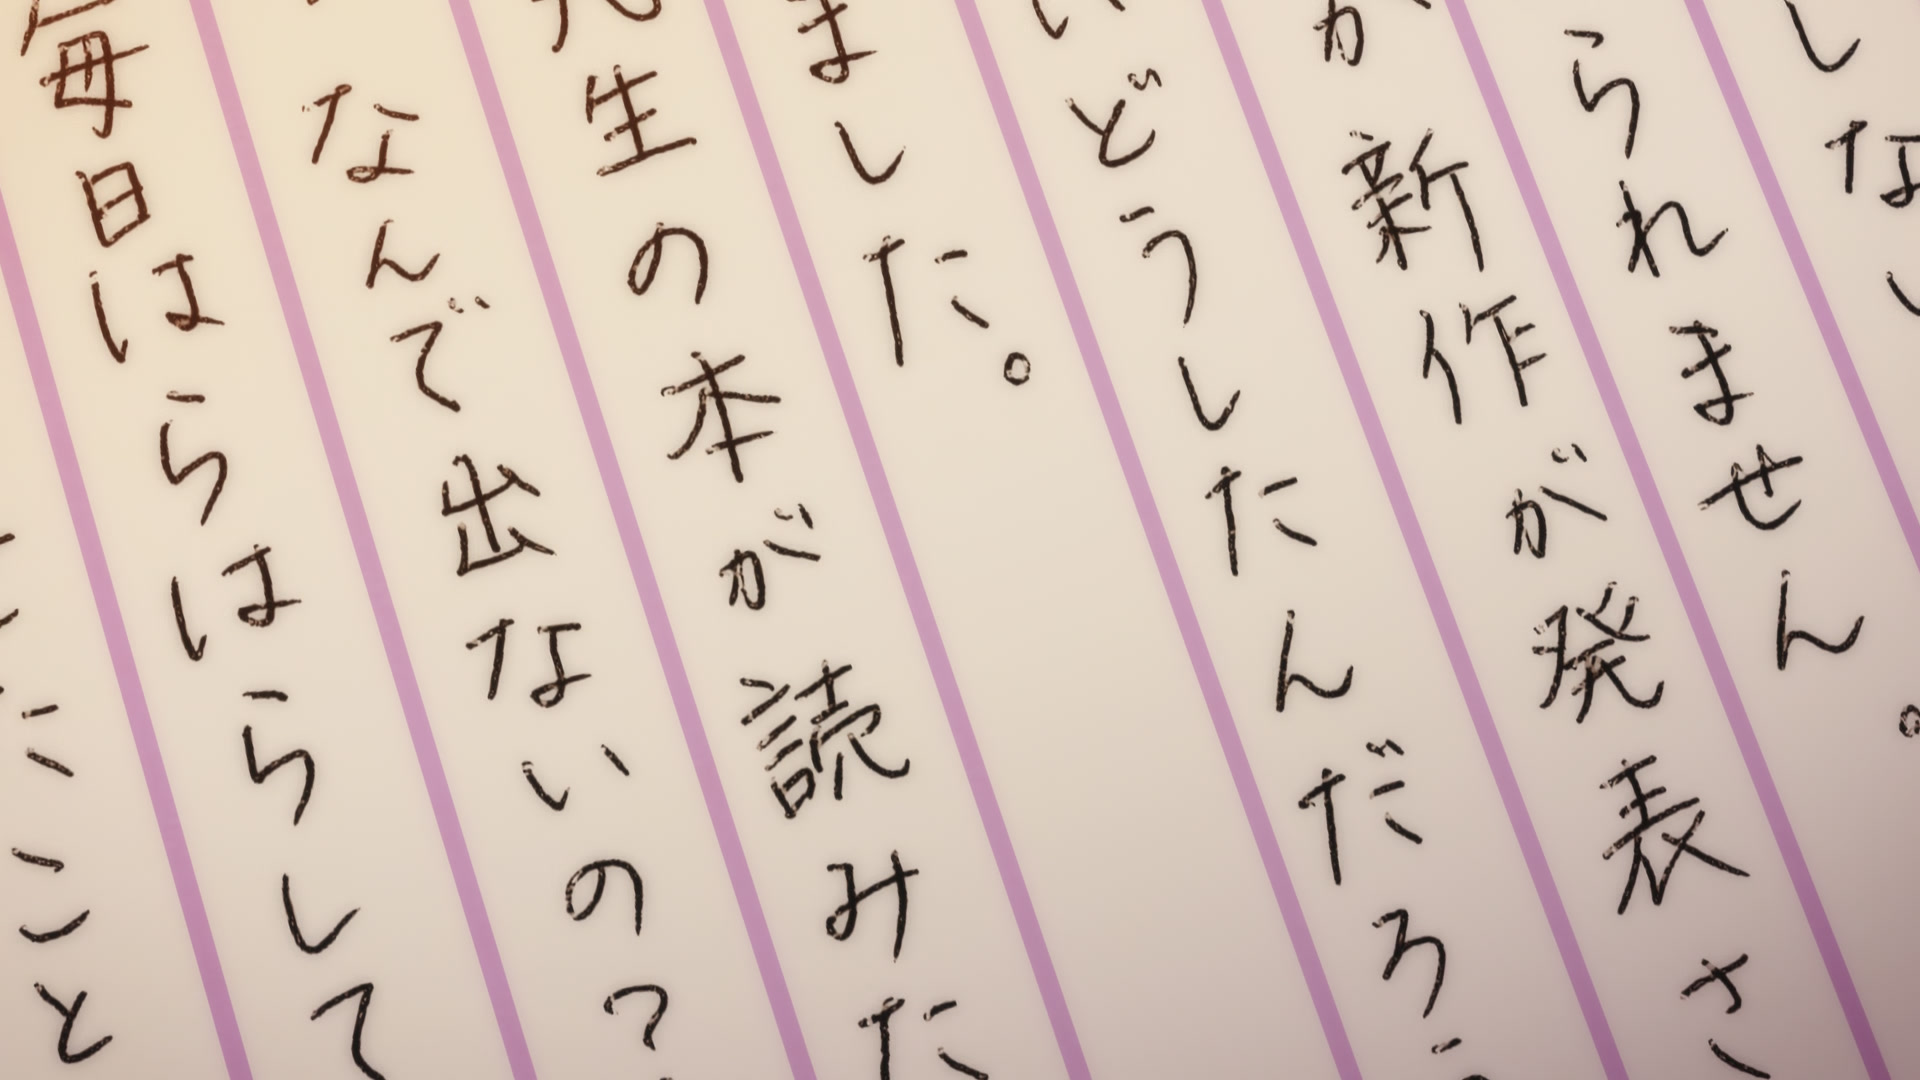 しない
られません。
が新作が発表さ
いどうしたんだろう
ました。
先生の本が読みた
なんで出ないの？
毎日はらはらして
たこと